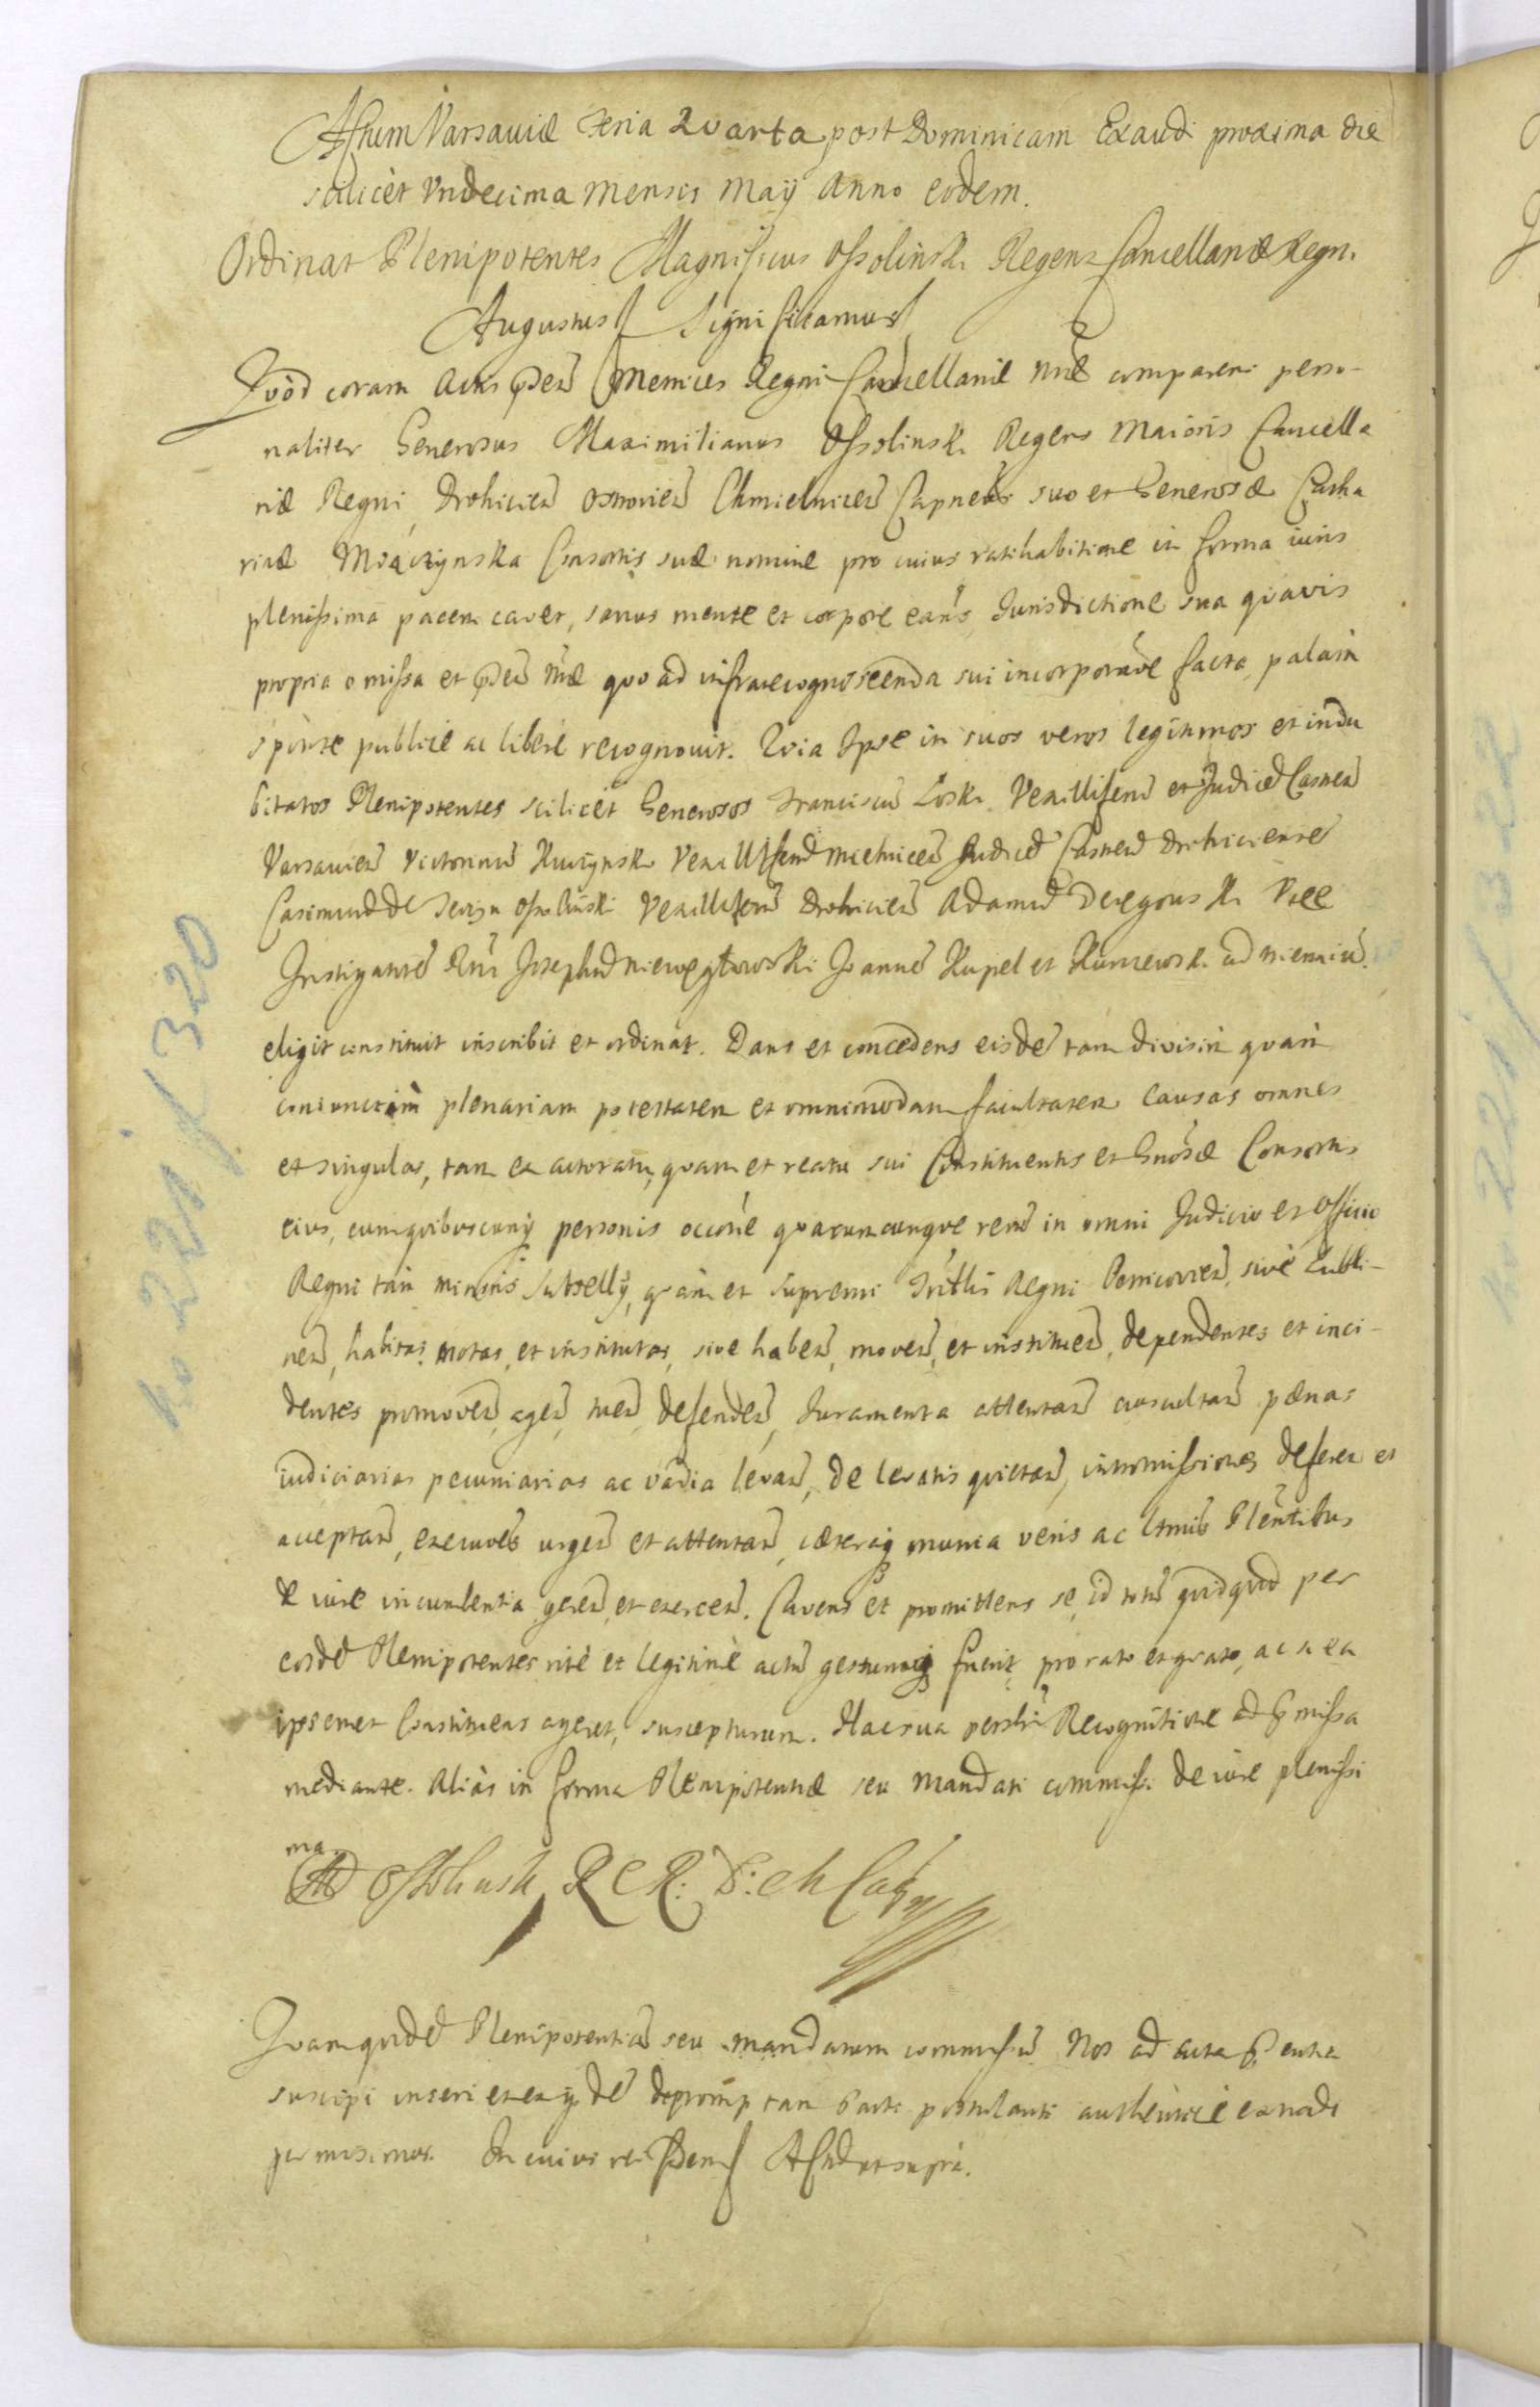 Actum Varsaviæ Feria Quarta post Dominicam Exaudi proxima die
scilicèt Undecima Mensis Maÿ Anno eodem.
Ordinat Plenipotentes Magnificus Ossolinski Regens Cancellariæ Regni
Augustus Significamus
Quòd coram Actis Metrices Regni Cancellariæ comparens perso-
naliter Generosus Maximilianus Ossolinski Regens Maioris Cancella
riæ Regni, Drohicien Chmielnicen suo et Generosæ Catha
rinæ Miączynska Consortis suæ nomine pro cuius ratihabitione in forma iuris
plenissima pacem cavet, sanus mente et corpore Jurisdictione sua quavis
propria omissa et quo ad infrarecognoscenda sui incorporãoe facta, palàm
sponte publicè ac liberè recognovit. Quia Ipse in suos veros legitimos et indu
bitatos Plenipotentes scilicèt Generosos Franciscũ Łoski Vexilliferũ et Judicẽ Castren
Varsavien Victorinũ Kuczynski Vexilliferũ Mielnicen Judicẽ Castren Drohiciensẽ
Casimirũ de Ossolinski Vexilliferũ Drohicien Adamũ Vice
Instigatorẽ Josephũ Niewęgłowski Joannẽ Kupel et ad
eligit constituit inscribit et ordinat. Dans et concedens eisdẽ tam divisìm quàm
coniunctìm plenariam potestatem et omnimodam facultatem Causas omnes
et singulas, tam ex actoratu, quam et reatu sui Constituentis et Gnosæ Consortis
eius, cum quibuscunq personis occõne quarumcunque rerũ in omni Judicio et Officio
Regni tàm minoris Subsellÿ, quàm et supremi Tritlis Regni Petricovien, sivè Lubli-
nen, habitas, motas, et institutas, sive haben, moven, et instituen, dependentes et inci-
dentes promoven, agen, tuen, defenden, Juramenta attentan auscultan pænas
iudiciarias pecuniarias ac vadia levan, de levatis quietan, intromissiones deferen et
acceptan, urgen et attentan, cæteraq munia veris ac Ltmis Plentibus
de iure incumbentia geren, et exercen. Cavens et promittens se, id totũ quidquid per
eosdẽ Plenipotentes ritè et legitimè actũ gestumq fuerit, pro rato et grato, ac si ea
ipsemet Constituens ageret, suscepturum. Hac sua Recognitione ad pmissa
mediante. Aliàs in forma Plenipotentiæ seu Mandati commissi de iure plenissi
ma.
M Ossolinski R C R: D: Ch
Quam quidẽ Plenipotentiã seu mandatum commissũ Nos ad acta
suscipi inseri et ex ijsdẽ depromptam Parti postulanti authenticè extradi
permisimus. In cuius rei fidem Actũ ut supra.
Ks 221 f 320